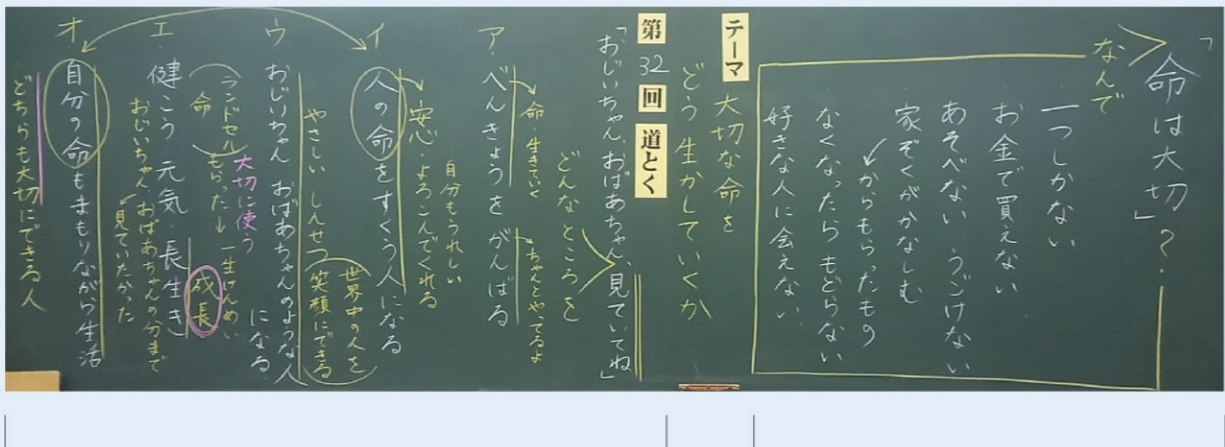 「命は大切」?
なんで
一つしかない
お金で買えない
あそべない うごけない
家ぞくがかなしむ
↙からもらったもの
なくなったらもどらない
好きな人に会えない
テーマ 大切な命を
どう生かしていくか
第32回 道とく
「おじいちゃん、おばあちゃん、見ていてね」
どんなところを
ア.べんきょうをがんばる
→命・生きていく
→ちゃんとやってるよ
イ.人の命をすくう人になる
→安心・よろこんでくれる
自分もうれしい
やさしい しんせつ
世界中の人を
笑顔にできる
ウ おじいちゃん おばあちゃんのような人
になる
ランドセル もらった→一生けんめい
命
大切に使う
成長
エ.健こう・元気・長生き
おじいちゃん、おばあちゃんの分まで
見ていたかった
オ 自分の命もまもりながら生活
どちらも大切にできる人